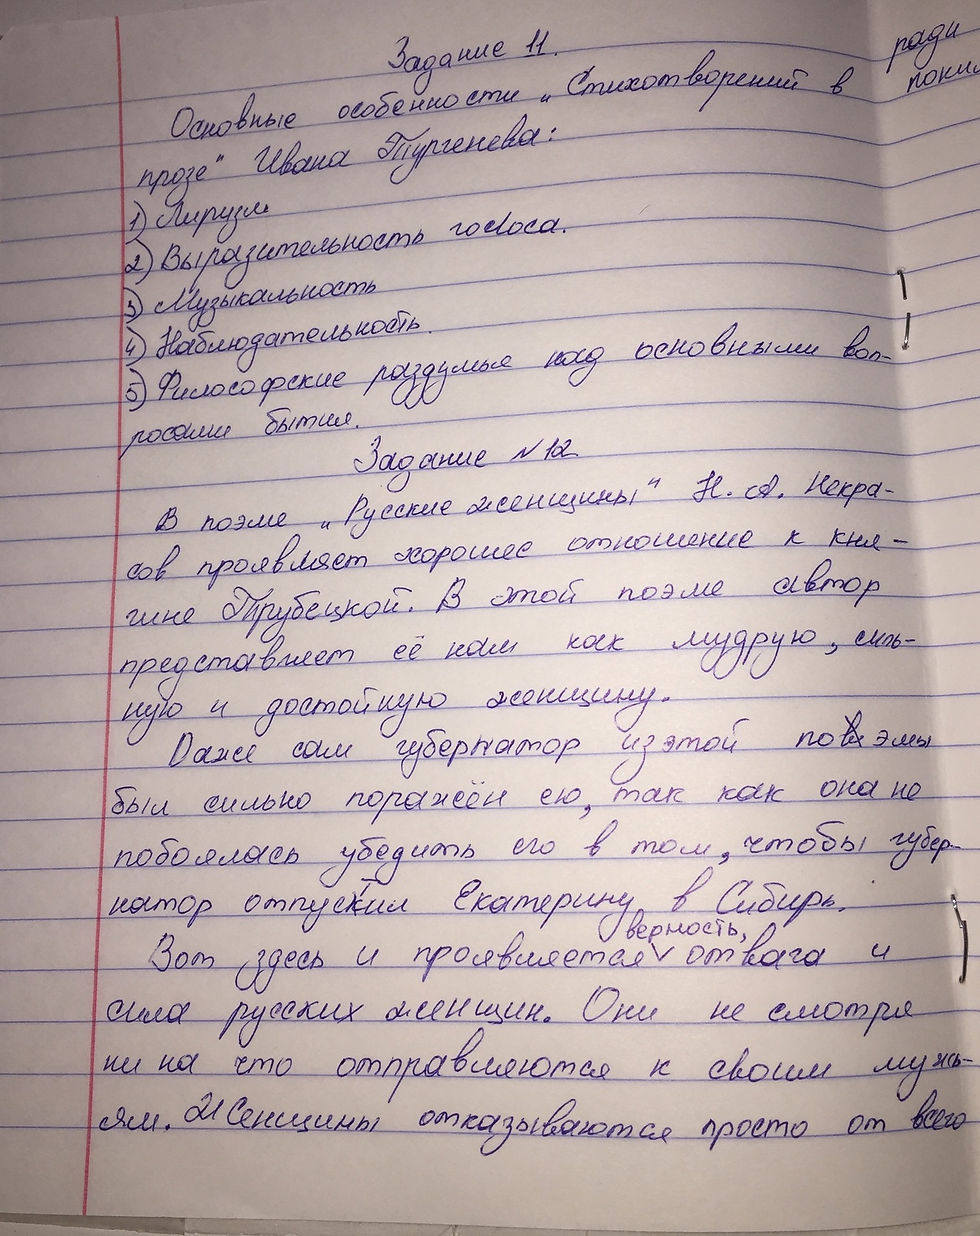 Задание 11.
Основные особенности „Стихотворений в
прозе" Ивана Тургенева:
1) Лирузм
2) Выразительность голоса.
3) Музыкальность
4) Наблюдательность.
5) Философские раздумья над основными воп-
росами бытия.
Задание №12
В поэме „Русские женщины" Н. А. Некра-
сов проявляет хорошее отношение к кня-
гине Трубецкой. В этой поэме автор
представляет её нам как мудрую, силь-
ную и достойную женщину.
Даже сам губернатор из этой поэмы
был сильно поражён ею, так как она не
побоялась убедить его в том, чтобы губер-
натор отпустил Екатерину в Сибирь.
Вот здесь и проявляется верность, отвага и
сила русских женщин. Они не смотря
ни на что отправляются к своим мужь-
ям. Женщины отказываются просто от всего
ради